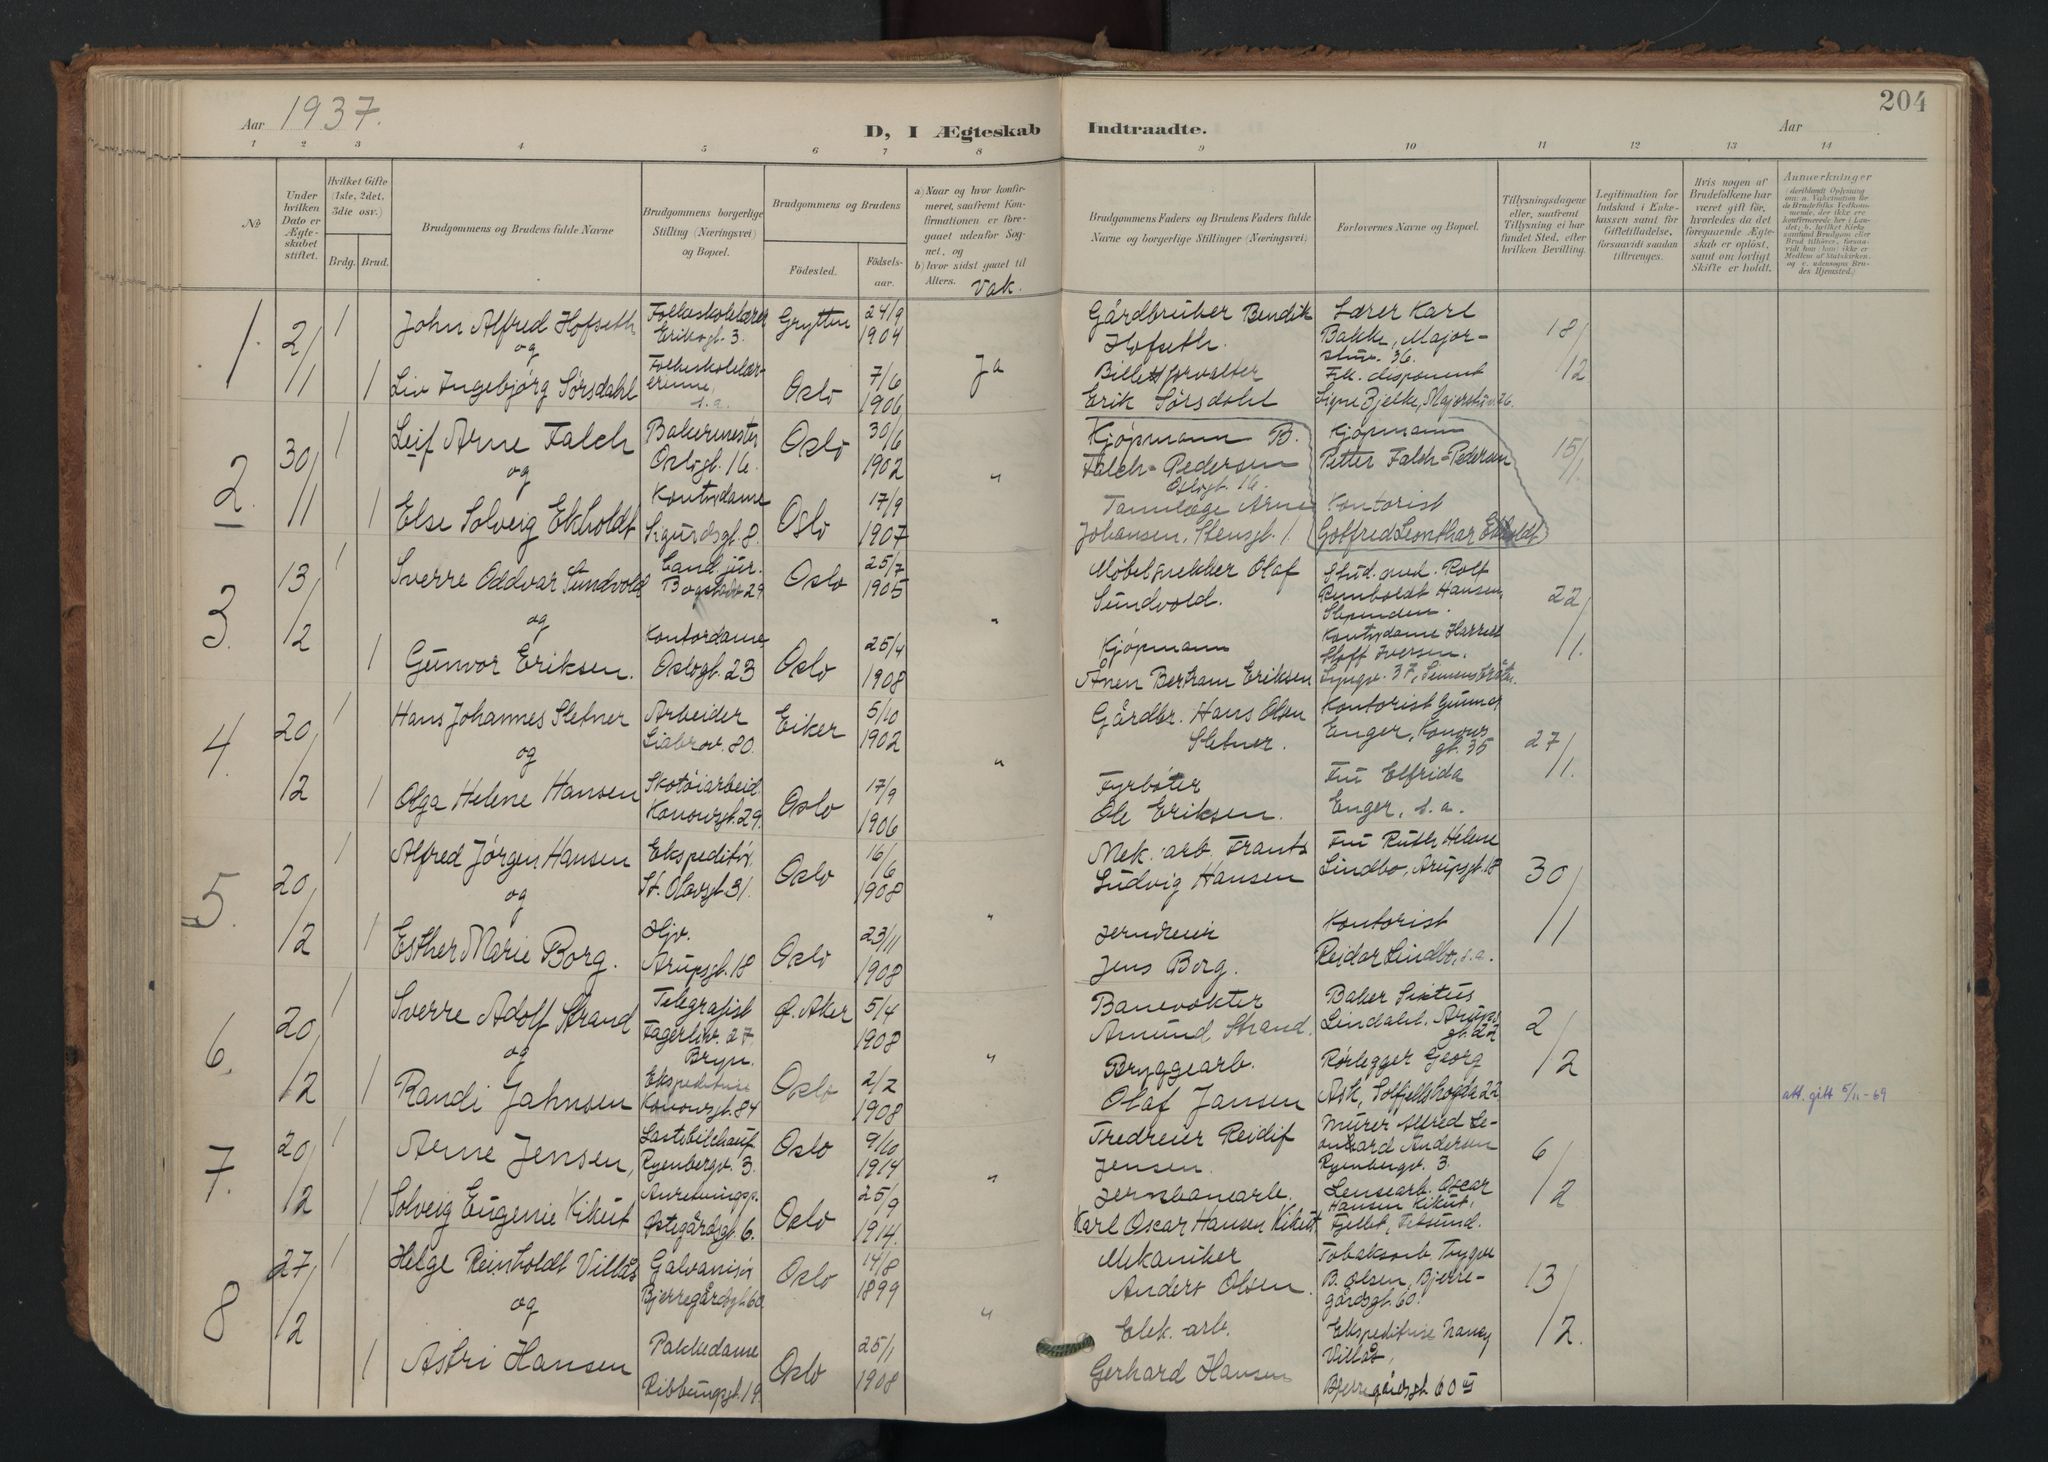 Aar 1937.
D, I Ægteskab Indtraadte.
204
Aar
1 2 3 4 5 6 7 8 9 10 11 12 13 14
No
Under hvilken Dato er Ægteskabet stiftet.
Hvilket Gifte (1ste, 2det, 3die osv.)
Brdg. Brud.
Brudgommens og Brudens fulde Navne
Brudgommens borgerlige Stilling (Næringsvei) og Bopæl.
Brudgommens og Brudens
Födested. Födsels-aar.
a) Naar og hvor konfirmeret, saafremt Konfirmationen er foregaaet udenfor Sognet, og
b) hvor sidst gaaet til Alters. Vak.
Brudgommens Faders og Brudens Faders fulde Navne og borgerlige Stillinger (Næringsvei)
Forlovernes Navne og Bopæl.
Tillysningsdagene eller, saafremt Tillysning ei har fundet Sted, efter hvilken Bevilling.
Legitimation for Indskud i Enkekassen samt for Giftetilladelse, forsaavidt saadan tiltrænges.
Hvis nogen af Brudefolkene har været gift før, hvorledes da det foregaaende Ægteskab er opløst, samt om lovligt Skifte er holdt.
Anmerkninger
1. 2/1 1 John Alfred Hofseth Folkeskolelærer Eriksgt. 3. Grytten 24/9 1904
og
1 Liv Ingebjørg Sørsdahl Folkeskolelærerinne, s.a. Oslo 7/6 1906 Ja
Gårdbruker Bendik Hofseth. Lærer Karl Bakke, Majorstuv. 36. 18/12
Billettforvalter Erik Sørsdahl Frk. disponent Signe Bjelke, Majorstuv. 36.
2. 30/1 1 Leif Arne Falch Bakermester Oslogt. 16. Oslo 30/6 1902
og
1 Else Solveig Ekholdt Kontordame Sigurdsgt. 8. Oslo 17/9 1907 "
Kjøpmann B. Falch-Pedersen Oslogt. 16. Kjøpmann Petter Falch-Pedersen 15/1.
Tannlæge Arne Johansen, Stensgt. 1. Kontorist Gotfred Leonthar Ekholdt
3. 13/2 1 Sverre Oddvar Sundvold Cand. jur. Bogstadv. 29 Oslo 25/7 1905
og
1 Gunvor Eriksen. Kontordame, Oslogt. 23 Oslo 25/4 1908 "
Møbelsnekker Olaf Sundvold. Stud. med. Rolf Rumboldt Hansen, Slependen. 22/1.
Kjøpmann Ånen Bertram Eriksen Kontordame Harriet Iversen.
4. 20/2 1 Hans Johannes Sletner Arbeider Liabrov. 80. Eiker 5/10 1902
og
1 Olga Helene Hansen Skotøiarbeid. Konowsgt. 29. Oslo 17/9 1906 "
Gårdbr. Hans Olsen Sletner. Kontorist Gunnar Enger, Konows gt. 35 27/1.
Fyrbøter Ole Eriksen. Fru Elfrida Enger, s.a.
5. 20/2 1 Alfred Jørgen Hansen Ekspeditør St. Olavsgt. 31. Oslo 16/6 1908
og
1 Esther Marie Borg. Hjv. Arupsgt. 18 Oslo 23/11 1908 "
Mek. arb. Frants Ludvig Hansen Fru Ruth Helene Lindbo, Arupsgt. 18 30/1
Jerndreier Jens Borg. Kontorist Reidar Lindbo, s.a.
6. 20/2 1 Sverre Adolf Strand Telegrafist Fagerliv. 27. Bryn. Ø. Aker 5/4 1908
og
1 Randi Jahnsen Ekspeditrise Konowsgt. 84 Oslo 2/2 1908 "
Banevokter Amund Strand. Baker Sixtus Lindahl, Arups gt. 22 2/2
Bryggearb. Olaf Jansen Rørlegger Georg Ask, Solfjellshøgda 22 att. gitt 5/11-69
7. 20/2 1 Arne Jensen, Lastebilchauf. Ryenbergv. 3. Oslo 9/10 1914
1 Solveig Eugenie Kikut Anretningsp. Østegårdsgt. 6. Oslo 25/9 1914. "
Tredreier Reidif Jensen. Murer Alfred Leonhard Andersen Ryenbergv. 3 6/2
Jernbanearb. Karl Oscar Hansen Kikut Lensearb. Oscar Hansen Kikut, Fjellet, Fetsund.
8 27/2 1 Helge Reinholdt Villås Galvanisør Bjerregårdsgt. 60. Oslo 14/8 1899
og
1 Astri Hansen Pakkedame Ribbungsgt. 19. Oslo 25/1 1908 "
Mekaniker Anders Olsen. Tobaksarb. Trygve B. Olsen, Bjerregårdsgt. 60. 13/2.
Elek. arb. Gerhard Hansen Ekspeditrise Nancy Villås, Bjerregårdsgt. 60